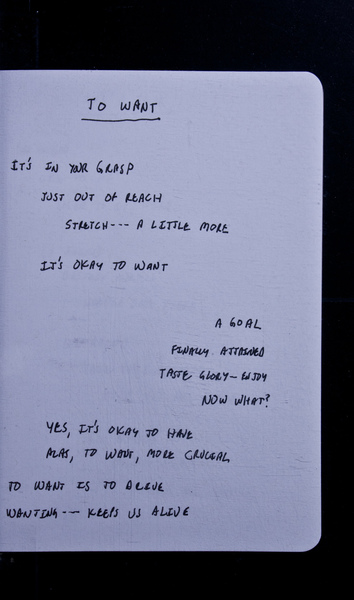 TO WANT
IT'S IN YOUR GRASP
JUST OUT OF REACH
STRETCH--- A LITTLE MORE
IT'S OKAY TO WANT
A GOAL
FINALLY ATTAINED
TASTE GLORY - ENJOY
NOW WHAT?
YES, IT'S OKAY TO HAVE
ALAS, TO WANT, MORE CRUCIAL
TO WANT IS TO
WANTING --- KEEPS US ALIVE